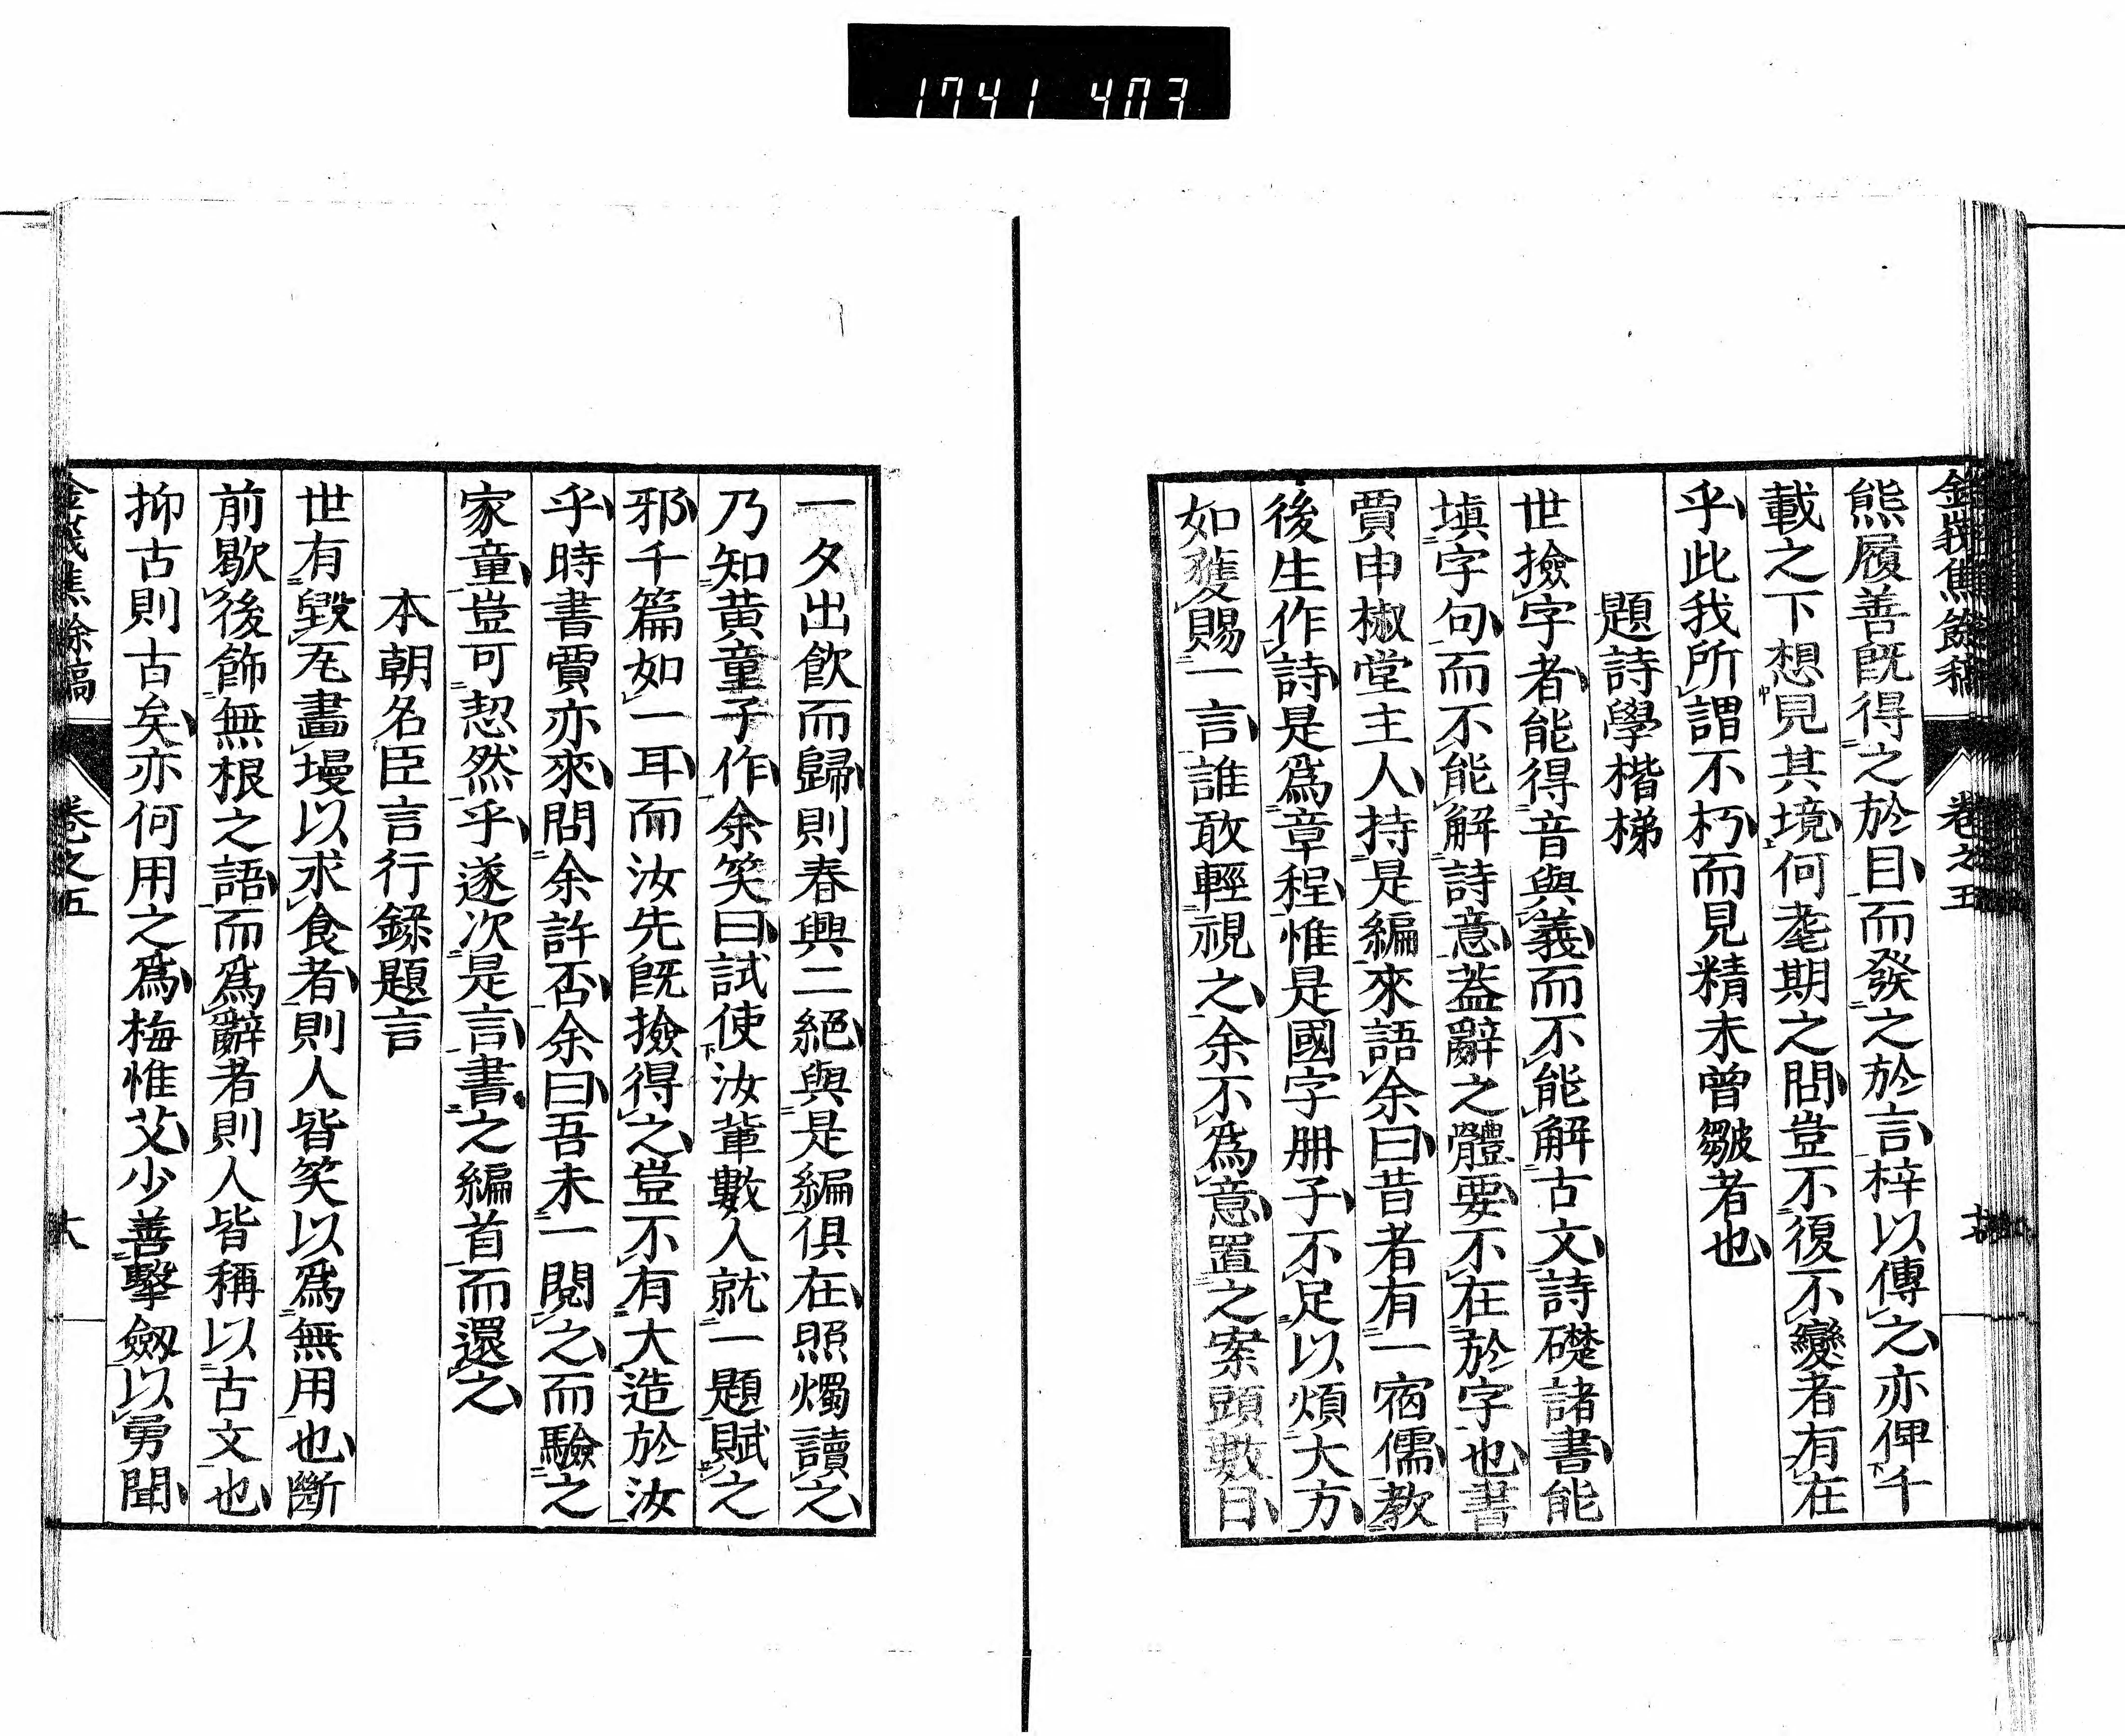 1741 403
熊履善既得之於目而發之於言梓以傳之亦俾千
載之下想見其境何耄期之問豈不復不變者有在
乎此我所謂不朽而見精未曾皺者也
題詩學楷梯
世撿字者能得音與義而不能解古文詩礎諸書能
塡字句而不能解詩意蓋辭之體要不在於字也書
賈申椒堂主人持是編來語余曰昔者有一宿儒教
後生作詩是爲章程惟是國字册子不足以煩大方
如獲賜一言誰敢輕視之余不爲意置之案頭數日
一夕出飲而歸則春興二絕與是編俱在照燭讀之
乃知黄童子作余笑曰試使汝輩數人就一題賦之
邪千篇如一耳而汝先既撿得之豈不有大造於汝
乎時書賈亦來問余許否余曰吾未一閱之而驗之
家童豈可恝然乎遂次是言書之編首而還之
本朝名臣言行録題言
世有毀瓦畫墁以求食者則人皆笑以爲無用也斷
前歇後飾無根之語而爲辭者則人皆稱以古文也
抑古則古矣亦何用之爲梅惟艾少善擊劔以勇聞
卷之五
六